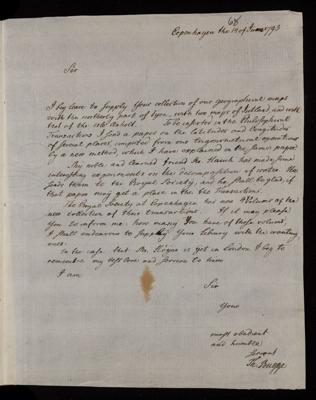 68
Copenhagen the 14 of June 1793
Sir
I beg leave to supply Your collection of our geographical maps
with the northerly part of Fyen, with two maps of Jutland, and with
that of the isle Anholt. To be inserted in the Philosophical
Transactions I send a paper on the latitudes and longitudes
of several places, computed from our trigonometrical operations
by a new method, which I have explained in the same paper.
My noble and learned friend Mr Hauch has made some
interesting experiments on the decomposition of water. He
sends them to the Royal Society, and he shall be glad, if
that paper may get a place in the Transactions.
The Royal Society at Copenhagen has now 4 Volumes of the
new collection of their transactions. If it may please
You to inform me, how many You have of these volumes,
I shall endeavour to supply Your library with the wanting
ones.
In the case that Mr. is yet in London I beg to
remember my best love and service to him
I am
Sir
Your
most obedient
and humble
servant
Th. Bugge